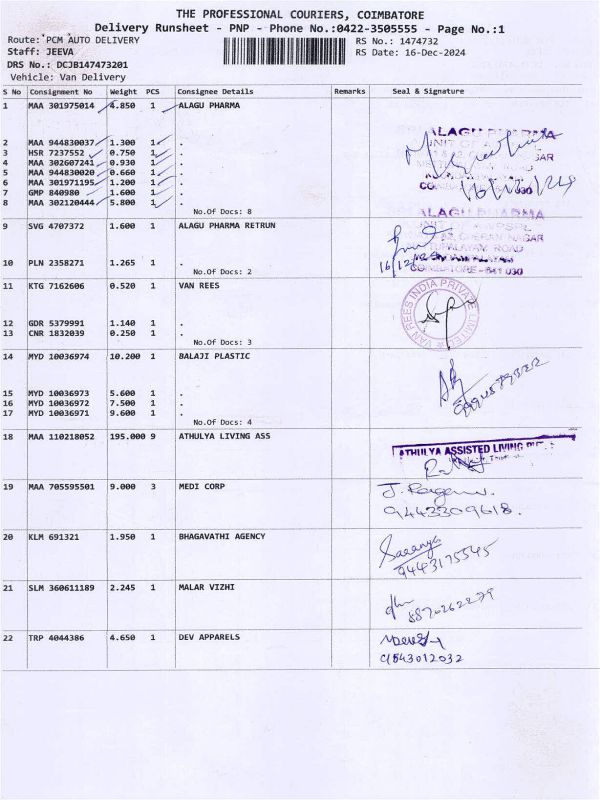 THE PROFESSIONAL COURIERS, COIMBATORE
Delivery Runsheet - PNP - Phone No.:0422-3505555 - Page No.:1
Route: PCM AUTO DELIVERY RS No.: 1474732
Staff: JEEVA RS Date: 16-Dec-2024
DRS No.: DCJB147473201
Vehicle: Van Delivery
S No Consignment No Weight PCS Consignee Details Remarks Seal & Signature
1 MAA 301975014 4.850 1 ALAGU PHARMA
2 MAA 944830037 1.300 1 .
3 HSR 7237552 0.750 1 .
4 MAA 302607241 0.930 1 .
5 MAA 944830020 0.660 1 .
6 MAA 301971195 1.200 1 .
7 GMP 840980 1.600 1 .
8 MAA 302120444 5.800 1 .
No.Of Docs: 8
ALAGU PHARMA
9 SVG 4707372 1.600 1 ALAGU PHARMA RETRUN
10 PLN 2358271 1.265 1 .
No.Of Docs: 2
COIMBATORE - 641 030
11 KTG 7162606 0.520 1 VAN REES
VAN REES INDIA PRIVATE LIMITED
12 GDR 5379991 1.140 1 .
13 CNR 1832039 0.250 1 .
No.Of Docs: 3
14 MYD 10036974 10.200 1 BALAJI PLASTIC
15 MYD 10036973 5.600 1 .
16 MYD 10036972 7.500 1 .
17 MYD 10036971 9.600 1 .
No.Of Docs: 4
18 MAA 110218052 195.000 9 ATHULYA LIVING ASS
ATHULYA ASSISTED LIVING
19 MAA 705595501 9.000 3 MEDI CORP
9443309618.
20 KLM 691321 1.950 1 BHAGAVATHI AGENCY
Saranya
9443175545
21 SLM 360611189 2.245 1 MALAR VIZHI
8870262279
22 TRP 4044386 4.650 1 DEV APPARELS